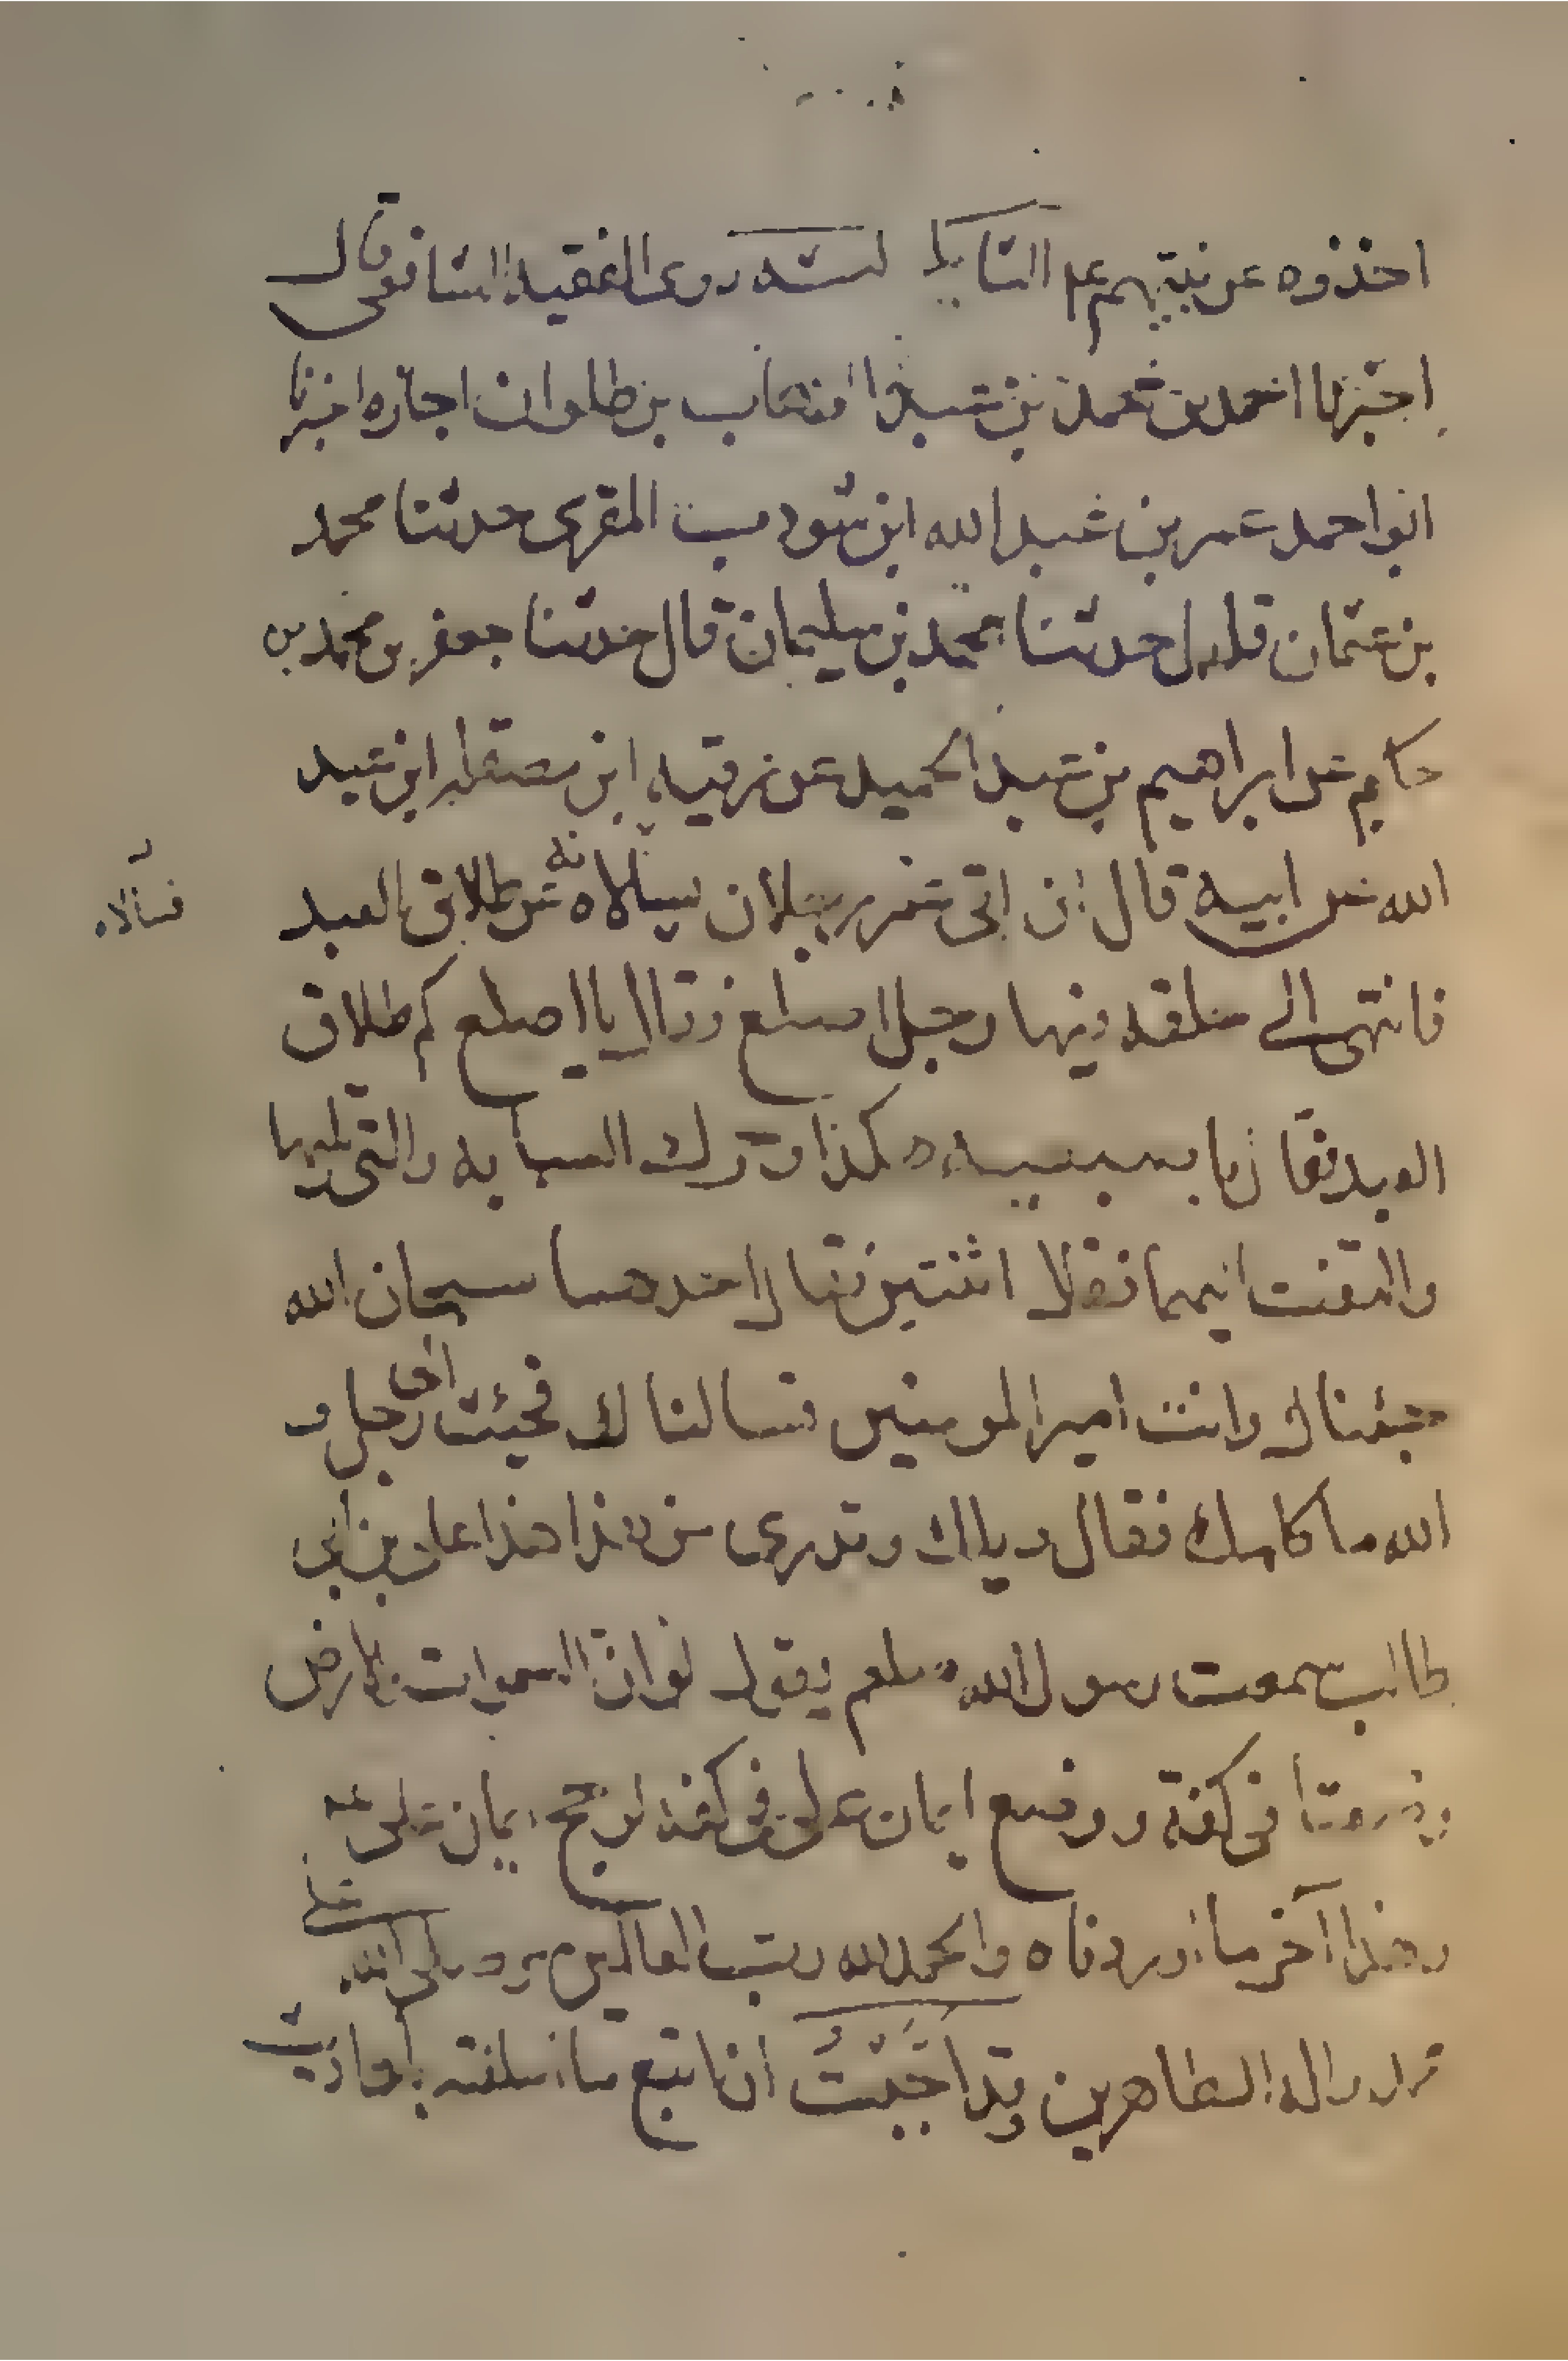 اخذوه عن نبيهم عليه السلام روى الفقيه الشافعى قال
اخبرنا احمد بن محمد بن عبد الوهاب بن طاوان اجازه اخبرنا
ابو احمد عمر بن عبد الله ابن شوذب المقرى حدثنا محمد
بن عثمان قال حدثنا محمد بن سليمان قال حدثنا جعفر بن محمد بن
حكيم عن ابراهيم بن عبد الحميد عن رقبه ابن مصقله ابن عبد
الله عن ابيه قال ان اتى عمر رجلان يسالانه عن طلاق العبد
فسالاه
فانتهى الى حلقه فيها رجل اصلع فقال يا اصلع كم طلاق
العبد فقال باصبعيه هكذا وحرك السبابه والتى تليها
والتفت اليهما فقال اثنتين فقال احدهما سبحان الله
جئناك وانت امير المومنين فسالناك فجئت الى رجل و
الله ما كلمك فقال ويلك وتدرى من هذا هذا على بن ابى
طالب سمعت رسول الله صلعم يقول لو ان السموات والارض
وضعتا فى كفة ووضع ايمان على فى كفة لرجح ايمان على
وهذا آخر ما اوردناه والحمد لله رب العالمين وصلى الله على
محمد واله الطاهرين وقد احببت ان اتبع ما اسلفته باحاديث